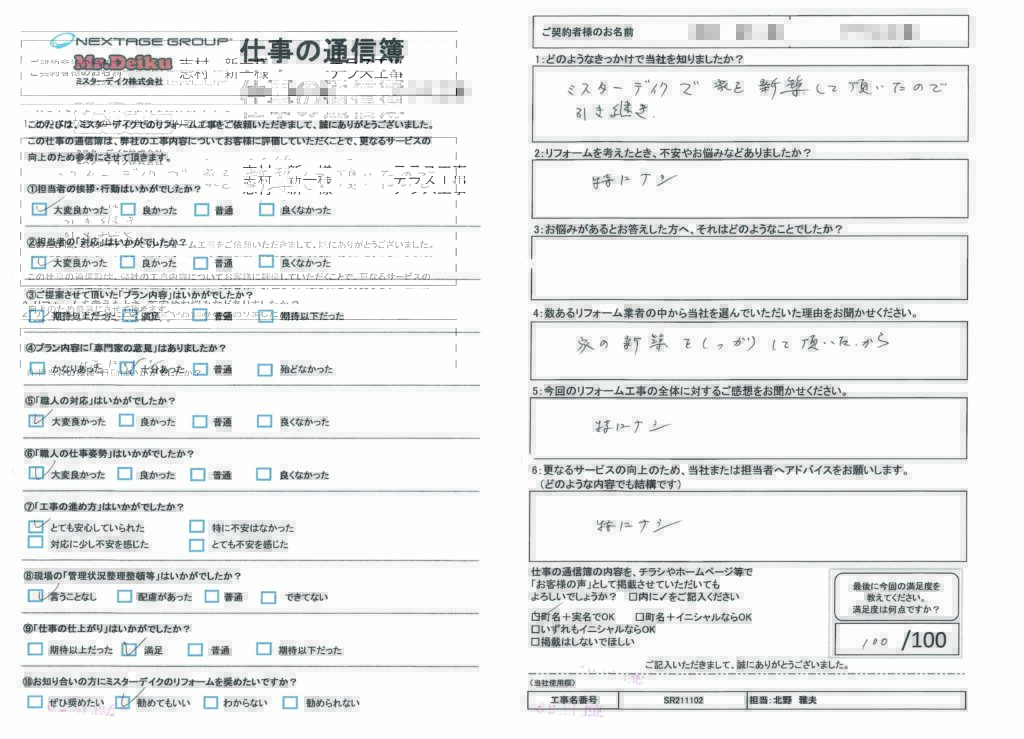 NEXTAGE GROUP
Mr.Deiku
ミスターデイク株式会社
仕事の通信簿
志村 新一様 テラス工事
このたびは、ミスターデイクでのリフォーム工事をご依頼いただきまして、誠にありがとうございました。
この仕事の通信簿は、弊社の工事内容についてお客様に評価していただくことで、更なるサービスの
向上のため参考にさせて頂きます。
志村 新一様 テラス工事
①担当者の挨拶・行動はいかがでしたか？
大変良かった 良かった 普通 良くなかった
②担当者の「対応」はいかがでしたか？
大変良かった 良かった 普通 良くなかった
③ご提案させて頂いた「プラン内容」はいかがでしたか？
期待以上だった 満足 普通 期待以下だった
④プラン内容に「専門家の意見」はありましたか？
かなりあった 十分あった 普通 殆どなかった
⑤「職人の対応」はいかがでしたか？
大変良かった 良かった 普通 良くなかった
⑥「職人の仕事姿勢」はいかがでしたか？
大変良かった 良かった 普通 良くなかった
⑦「工事の進め方」はいかがでしたか？
とても安心していられた 特に不安はなかった
対応に少し不安を感じた とても不安を感じた
⑧現場の「管理状況整理整頓等」はいかがでしたか？
言うことなし 配慮があった 普通 できてない
⑨「仕事の仕上がり」はいかがでしたか？
期待以上だった 満足 普通 期待以下だった
⑩お知り合いの方にミスターデイクのリフォームを奨めたいですか？
ぜひ奨めたい 勧めてもいい わからない 勧められない
ご契約者様のお名前
1：どのようなきっかけで当社を知りましたか？
ミスターデイクで家を新築して頂いたので
引き継き.
2：リフォームを考えたとき、不安やお悩みなどありましたか？
特にナシ
3：お悩みがあるとお答えした方へ、それはどのようなことでしたか？
4：数あるリフォーム業者の中から当社を選んでいただいた理由をお聞かせください。
家の新築をしっかりして頂いたから
5：今回のリフォーム工事の全体に対するご感想をお聞かせください。
特にナシ
6：更なるサービスの向上のため、当社または担当者へアドバイスをお願いします。
（どのような内容でも結構です）
特にナシ
仕事の通信簿の内容を、チラシやホームページ等で
「お客様の声」として掲載させていただいても
よろしいでしょうか？ □内に✓をご記入ください
☑町名＋実名でOK □町名＋イニシャルならOK
□いずれもイニシャルならOK
□掲載はしないでほしい
最後に今回の満足度を
教えてください。
満足度は何点ですか？
100 /100
ご記入いただきまして、誠にありがとうございました。
（当社使用欄）
工事名番号 SR211102 担当：北野 雅夫